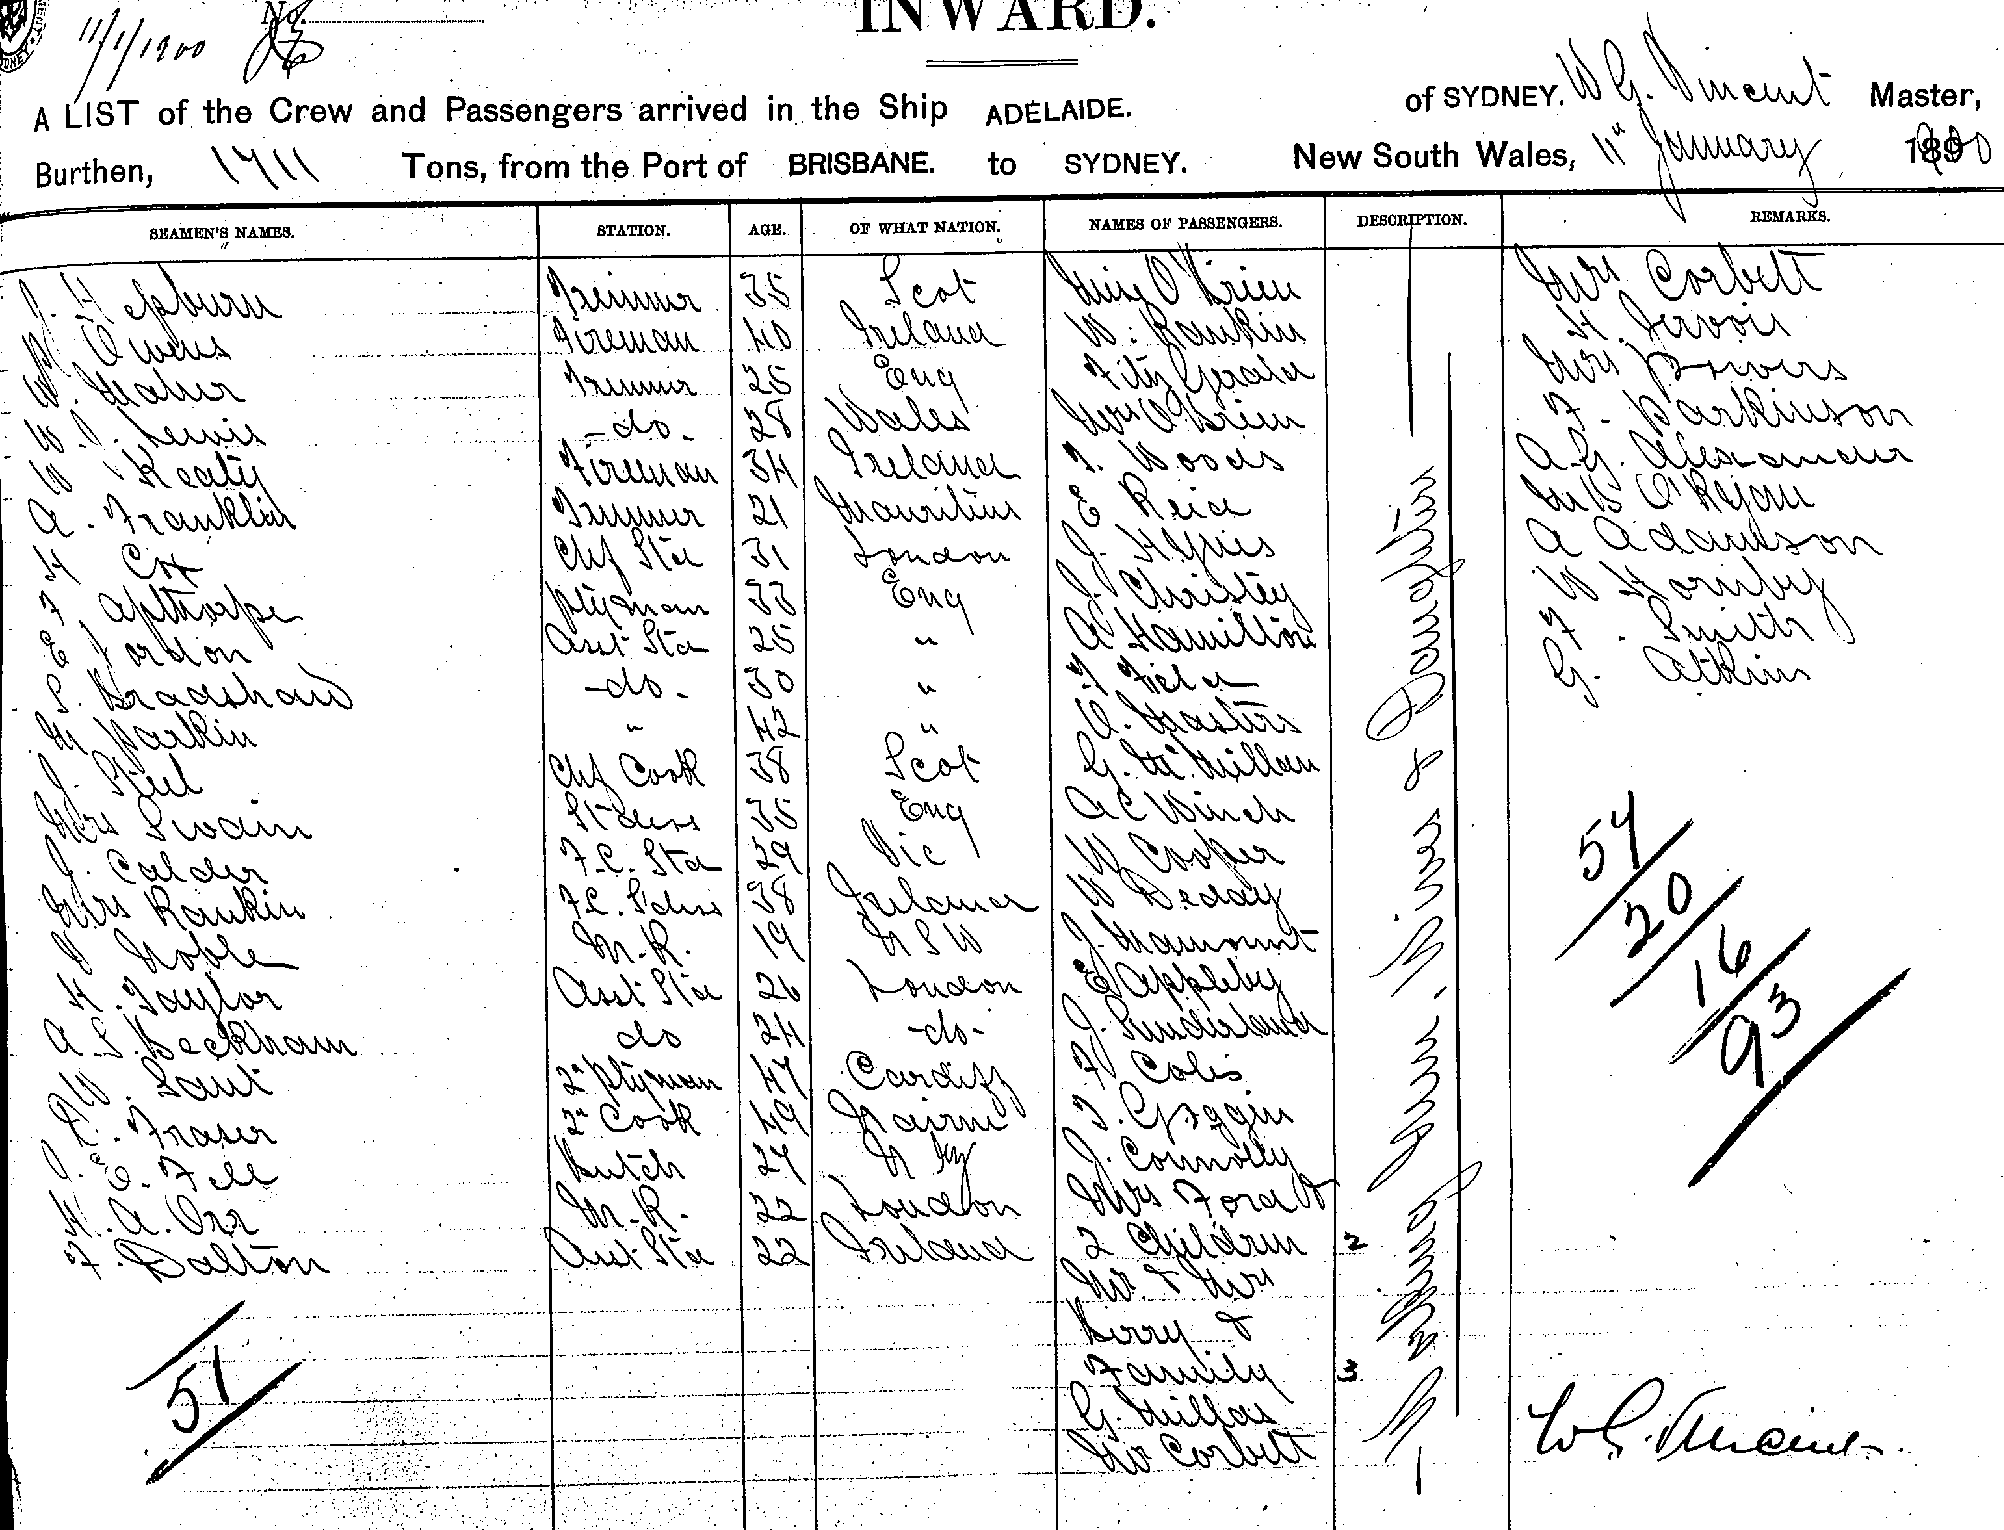 11/1/1900 No.
INWARD.
A LIST of the Crew and Passengers arrived in the Ship ADELAIDE. of SYDNEY, W G. Vincent Master,
Burthen, 1711 Tons, from the Port of BRISBANE. to SYDNEY. New South Wales, 11th January 1900
SEAMEN'S NAMES. STATION. AGE. OF WHAT NATION. NAMES OF PASSENGERS. DESCRIPTION. REMARKS.
J. Hepburn Trimmer 35 Scot Miss O'Brien Mrs Corbett
M. Owens Fireman 40 Ireland W. Rankin H. Jervois
W. Maher Trimmer 25 Eng Fitz Gerald Mrs Bowers
W. J. Lewis -do- 28 Wales Mrs O'Brien F. Parkinson
W Keaty Fireman 34 Ireland T. Woods A.G. Alexander
A. Franklin Trimmer 21 Mauritius E Reid
H Cox Chf Std 31 London J. Hynes A Adamson
F Apthorpe Ptyman 33 Eng J. Christey W Hornby
E Jordon Asst Std 25 " A Hamilton F. Smith
S. Bradshaw -do- 30 " F Field G. Atkins
M Parkin " 42 " A. Masters
J. Steel Chf Cook 38 Scot G. McMillan
Mrs Swain Stdess 35 Eng A C Winch
J. Calder F.C. Std 29 Vic W Cooper
Mrs Rankin F.C. Stdess 38 Ireland W Deday
Noble M.R. 19 N S W J.
H. Taylor Asst Std 26 London E Appleby
A. S. Beckham do 24 -do- J. Sunderland
W. Saut 2nd Ptyman 47 Cardiff F Coles
R. Fraser 2nd Cook 49 Nairne T. Goggin
J. E. Fell Butch 27 N Z J. Connolly
H. A. Orr M.R. 22 London Mrs Ford &
F. Dalton Asst Std 22 Ireland 2 Children 2
Mr & Mrs
Berry &
Family 3
G. Millar
Mr Corbett
51
54
20
16
93
W G. Vincent